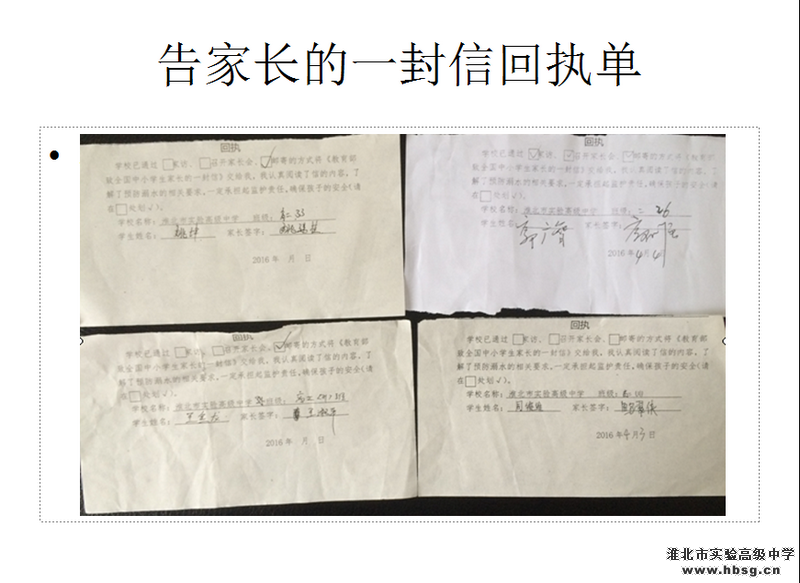 告家长的一封信回执单
回执
学校已通过□家访、□召开家长会、☑邮寄的方式将《教育部
致全国中小学生家长的一封信》交给我，我认真阅读了信的内容，了
解了预防溺水的相关要求，一定承担起监护责任，确保孩子的安全（请
在□处划√）。
学校名称：淮北市实验高级中学 班级：高二 33
学生姓名： 家长签字：
2016年 月 日
回执
学校已通过☑家访、☑召开家长会、☑邮寄的方式将《教育部
致全国中小学生家长的一封信》交给我，我认真阅读了信的内容，了
解了预防溺水的相关要求，一定承担起监护责任，确保孩子的安全（请
在□处划√）。
学校名称：淮北市实验高级中学 班级：二 26
学生姓名： 家长签字：
2016年4月4日
回执
学校已通过□家访、□召开家长会、☑邮寄的方式将《教育部
致全国中小学生家长的一封信》交给我，我认真阅读了信的内容，了
解了预防溺水的相关要求，一定承担起监护责任，确保孩子的安全（请
在□处划√）。
学校名称：淮北市实验高级中学 班级：
学生姓名： 家长签字：
2016年 月 日
回执
学校已通过□家访、□召开家长会、□邮寄的方式将《教育部
致全国中小学生家长的一封信》交给我，我认真阅读了信的内容，了
解了预防溺水的相关要求，一定承担起监护责任，确保孩子的安全（请
在□处划√）。
学校名称：淮北市实验高级中学 班级：
学生姓名： 家长签字：
2016年4月3日
淮北市实验高级中学
www.hbsg.cn